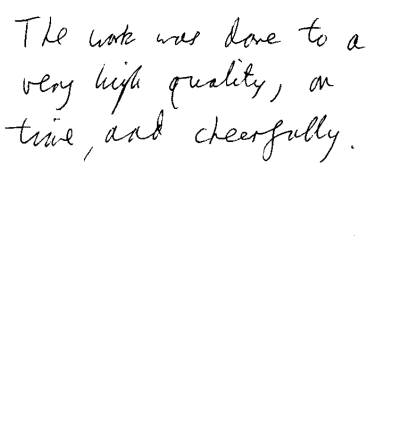 The work was done to a
very high quality, on
time, and cheerfully.